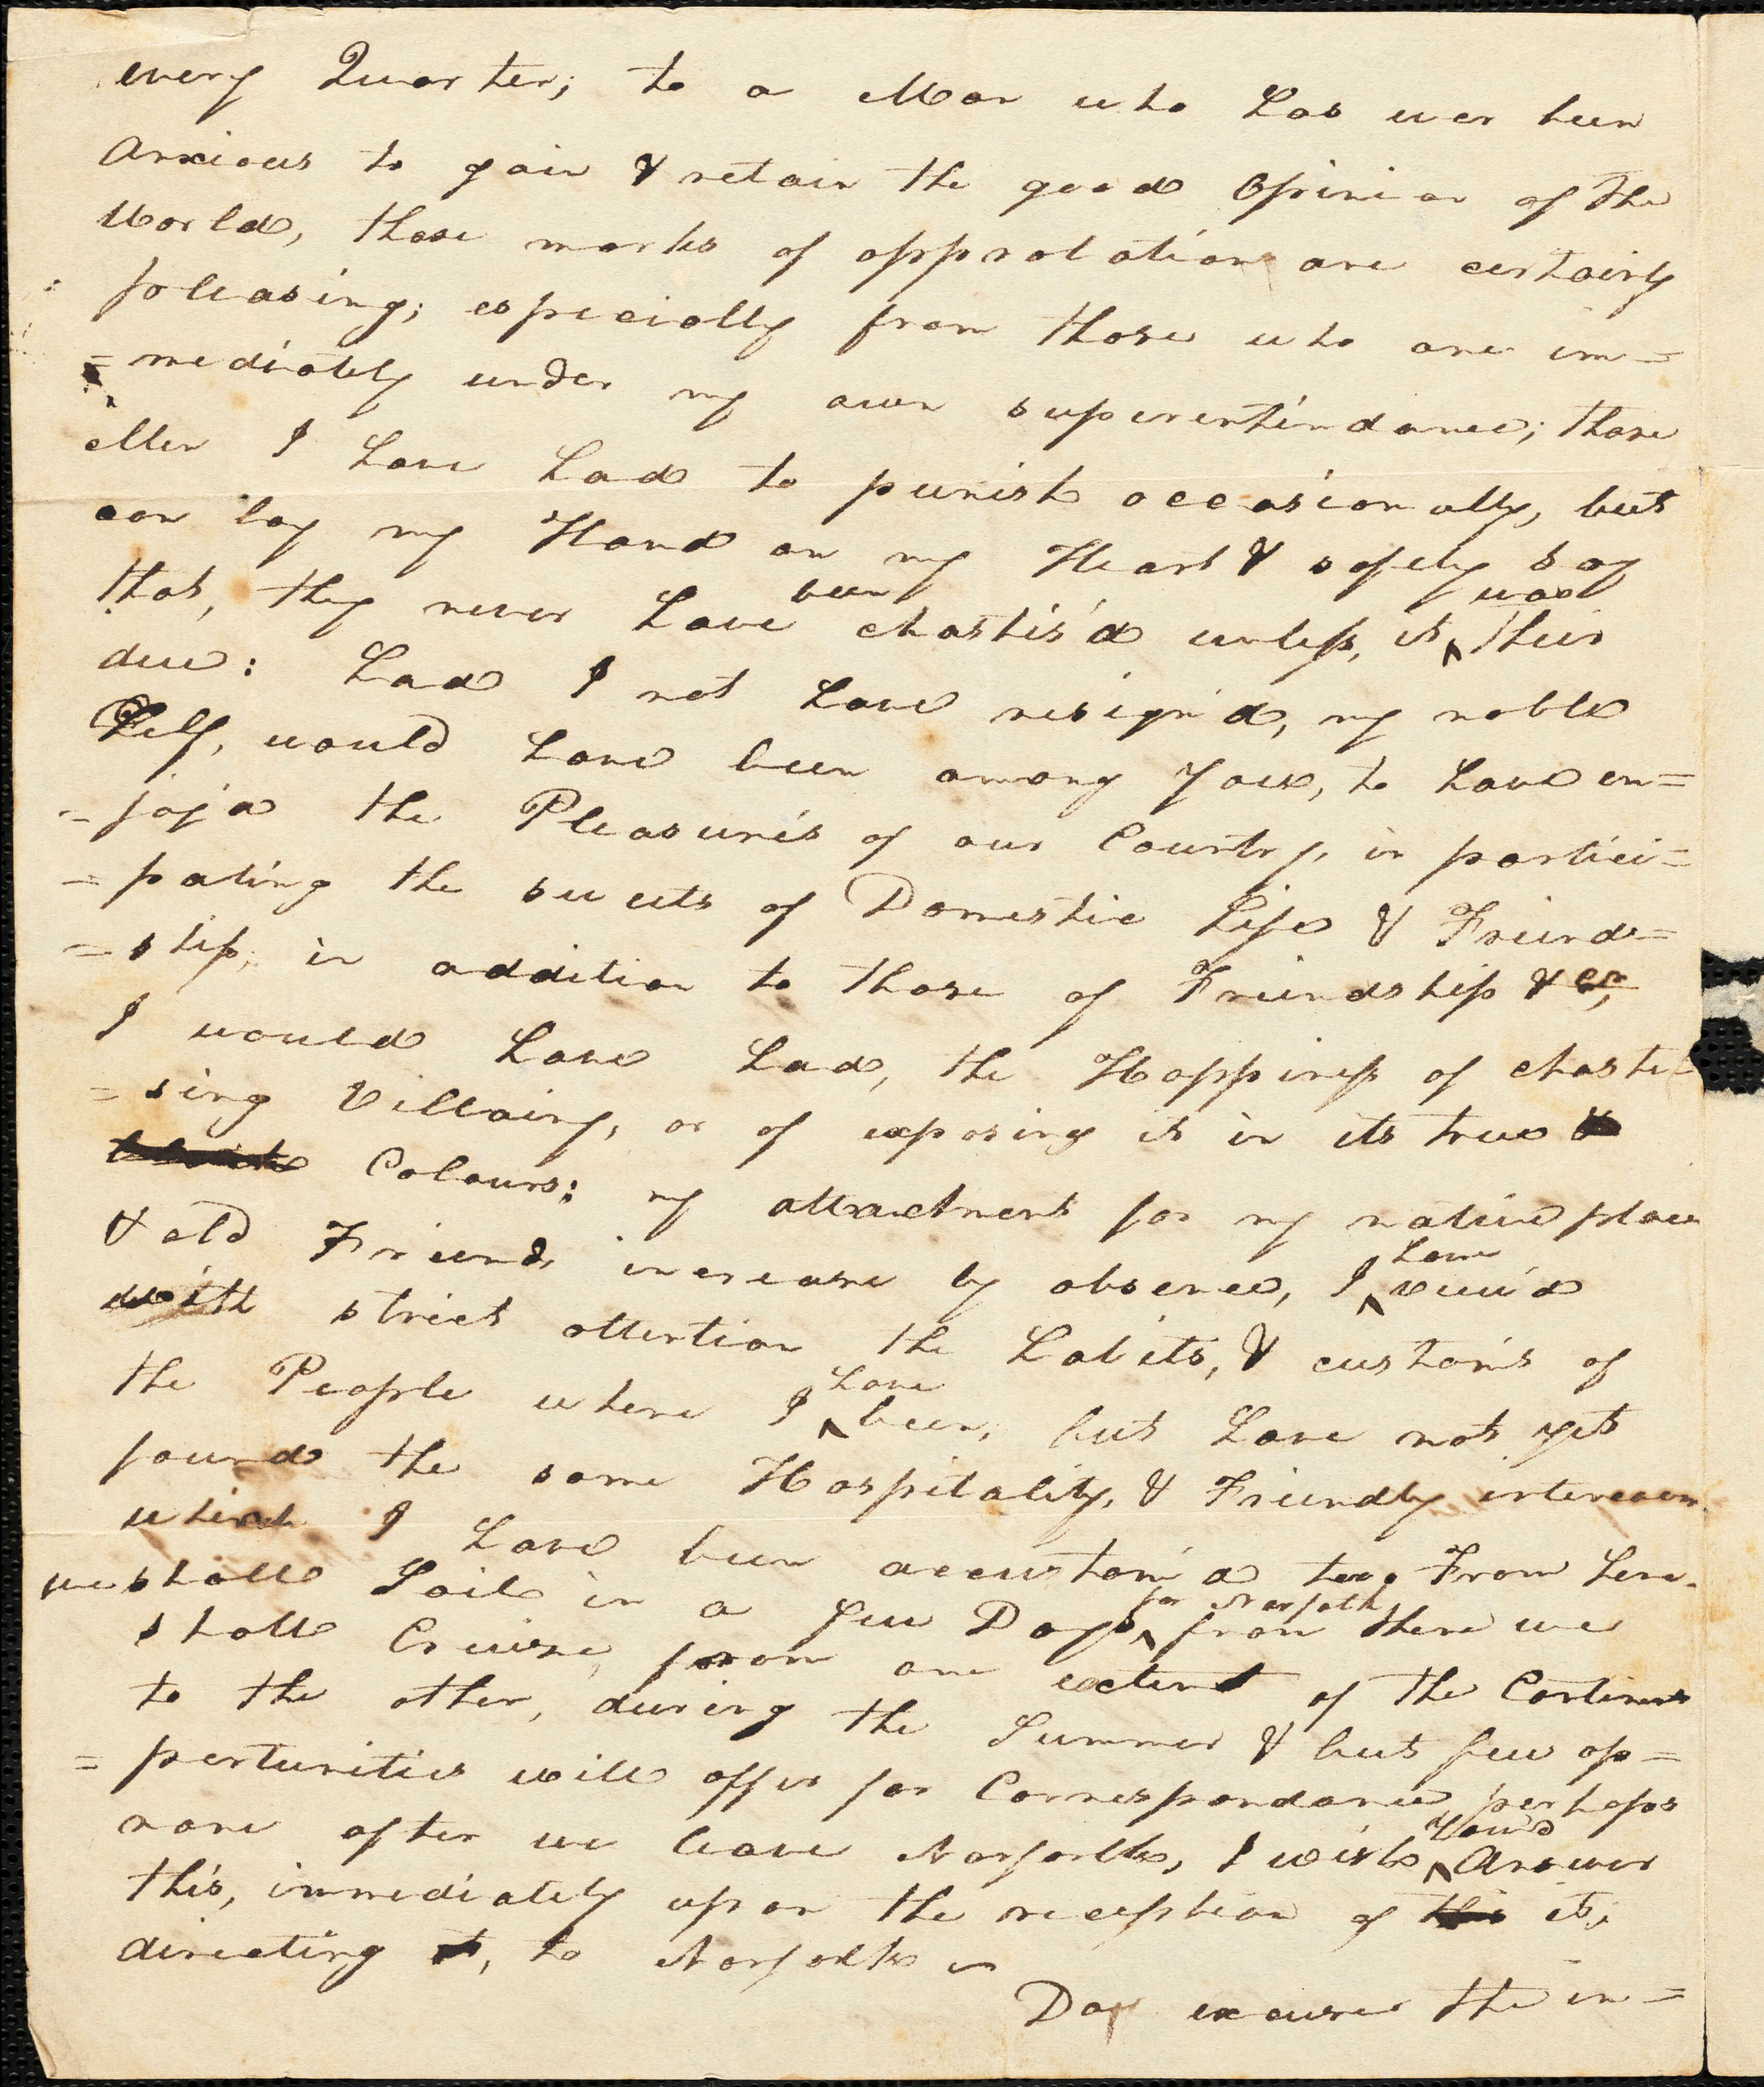 every Quarter; to a Man who has ever been
anxious to gain & retain the good Opinion of the
World, those marks of approbation are certainly
pleasing; especially from those who are im=
=mediately under my own superentindance; those
Men I have had to punish occasionally, but
can lay my Hand on my Heart & safely say
that, they never have been chastis'd unless, it was their
due: had I not have resign'd, my noble
Self, would have been among You, to have en=
=joy'd the Pleasures of our Country, in partici=
=pating the sweets of Domestic Life & Friend=
=ship; in addition to those of Friendship & cr,
I would have had, the Happiness of chasti=
=sing Villainy, or of exposing it in its true
Colours; my attachment for my native place
& old Friends increase by absence, I have view'd
with strict attention the habits, & customs of
the People where I have been, but have not yet
found the same Hospitality, & Friendly intercour
which I have been accustom'd too. From here
we shall Sail in a few Days for Norfolk, from there we
shall Cruise, from one extent of the Continent
to the other, during the Summer & but few op=
=portunities will offer for Correspondance, perhaps
none after we leave Norfolk, I wish You'd Answer
this, immediately upon the reception of it,
directing it, to Norfolk
Day excuse the in=